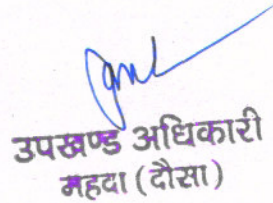 उपखण्ड अधिकारी
महवा (दौसा)